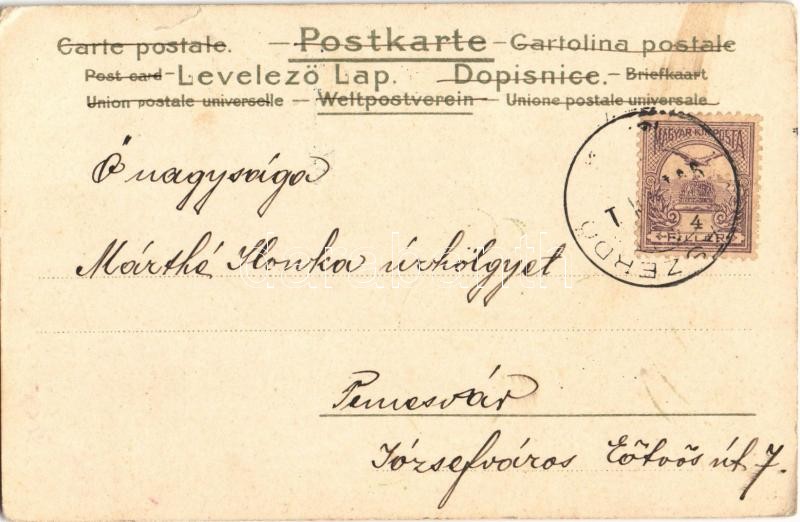 Carte postale. Postkarte Cartolina postale
Post card Levelező Lap. Dopisnice. Briefkaart
Union postale universelle Weltpostverein Unione postale universale
MAGYAR KIR. POSTA
4
FILLÉR
SZERDO
Ő nagysága
Márthé Ilonka úrhölgyet
darabanth
Temesvár
Józsefváros Eötvös út 7.